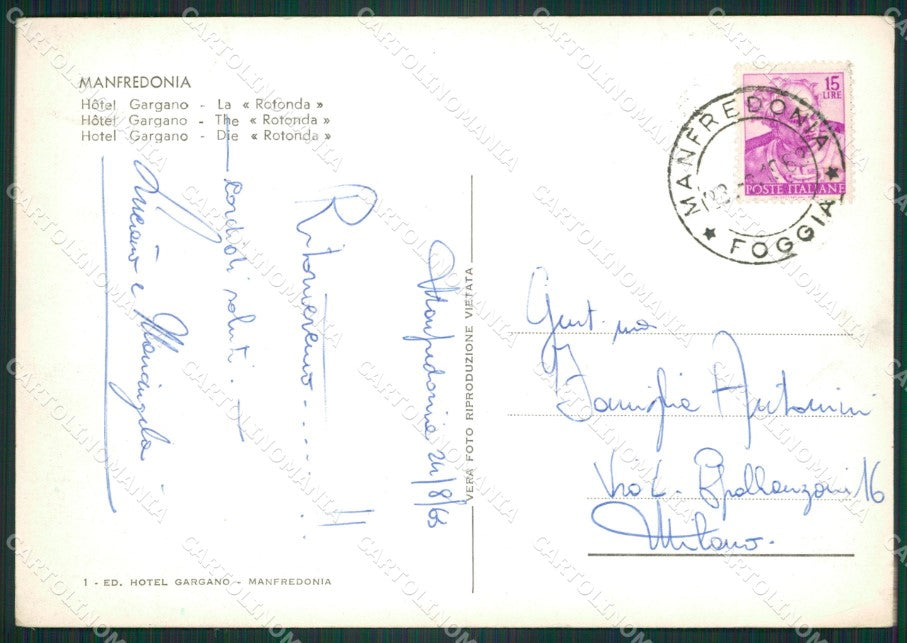 MANFREDONIA
Hôtel Gargano - La « Rotonda »
Hôtel Gargano - The « Rotonda »
Hotel Gargano - Die « Rotonda »
Manfredonia 24/8/65
Ritorneremo......!!
Cordiali saluti.
Luciano e Mariangela
VERA FOTO RIPRODUZIONE VIETATA
1 - ED. HOTEL GARGANO - MANFREDONIA
15
LIRE
POSTE ITALIANE
MANFREDONIA
★ FOGGIA ★
Gent. ma
Famiglia Antonini
Via L. Spallanzani 16
Milano.
CARTOLINOMANIA